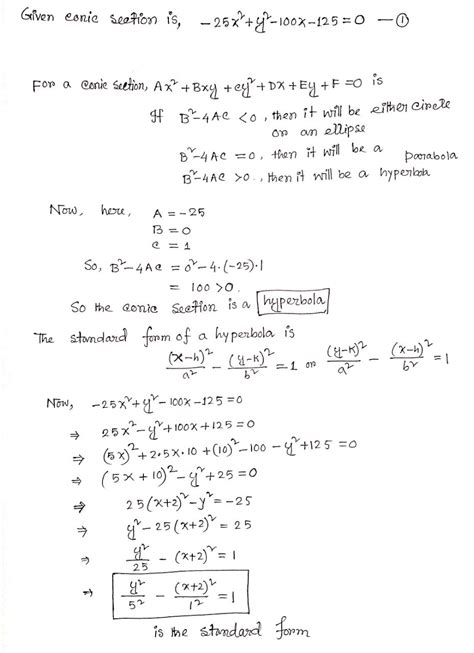 Given conic section is, -25x²+y²-100x-125=0 —①
For a conic section, Ax²+Bxy+cy²+Dx+Ey+F=0 is
If B²-4AC <0, then it will be either circle
or an ellipse
B²-4AC =0, then it will be a parabola
B²-4AC >0., then it will be a hyperbola
Now, here, A = -25
B = 0
C = 1
So, B²-4AC = 0²-4·(-25)·1
= 100 >0.
So the conic section is a hyperbola
The standard form of a hyperbola is
(x-h)²/a² - (y-k)²/b² = 1 or (y-k)²/a² - (x-h)²/b² = 1
Now, -25x²+y²-100x-125=0
⇒ 25x²-y²+100x+125=0
⇒ (5x)²+2·5x·10+(10)²-100-y²+125=0
⇒ (5x+10)²-y²+25=0
⇒ 25(x+2)²-y²=-25
⇒ y²-25(x+2)²=25
⇒ y²/25 - (x+2)²=1
⇒ y²/5² - (x+2)²/1² = 1
is the standard form